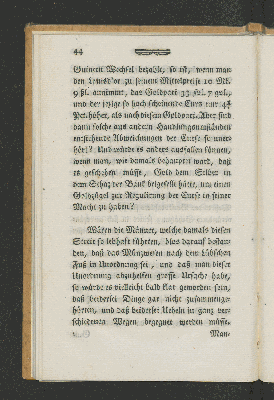 44
Guineen Wechsel bezahle, so ist, wenn man
den Louisd'or zu seinem Mittelpreise 10 Mk.
9 ßl. annimmt, das Goldpari 33 ßvl. 7 grvl.
und der itzige so hoch scheinende Curs nur 4¾
Pct. höher, als nach diesem Goldpari. Aber sind
dann solche aus andern Handlungsumständen
entstehende Abweichungen der Curse so uner-
hört? Und würde es anders ausfallen können,
wenn man, wie damals behauptet ward, daß
es geschehen müsse, Gold dem Silber in
dem Schatz der Bank beigesellt hätte, um einen
Geldzügel zur Regulirung der Curse in seiner
Macht zu haben?
Wären die Männer, welche damals diesen
Streit so lebhaft führten, blos darauf bestan-
den, daß das Münzwesen nach dem Lübschen
Fuß in Unordnung sei, und daß man dieser
Unordnung abzuhelfen grosse Ursache habe,
so würde es vielleicht bald klar geworden sein,
daß beiderlei Dinge gar nicht zusammenge-
hörten, und daß beiderlei Uebeln in ganz ver-
schiedenen Wegen begegnet werden müsse.
Man-